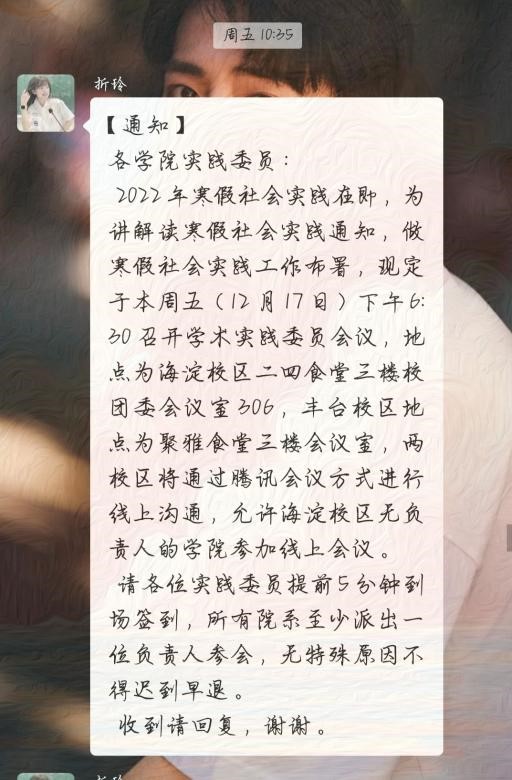 周五 10:35
折玲
【通知】
各学院实践委员：
2022年寒假社会实践在即，为
讲解读寒假社会实践通知，做
寒假社会实践工作布署，现定
于本周五（12月17日）下午6:
30召开学术实践委员会议，地
点为海淀校区二四食堂三楼校
团委会议室306，丰台校区地
点为聚雅食堂三楼会议室，两
校区将通过腾讯会议方式进行
线上沟通，允许海淀校区无负
责人的学院参加线上会议。
请各位实践委员提前5分钟到
场签到，所有院系至少派出一
位负责人参会，无特殊原因不
得迟到早退。
收到请回复，谢谢。